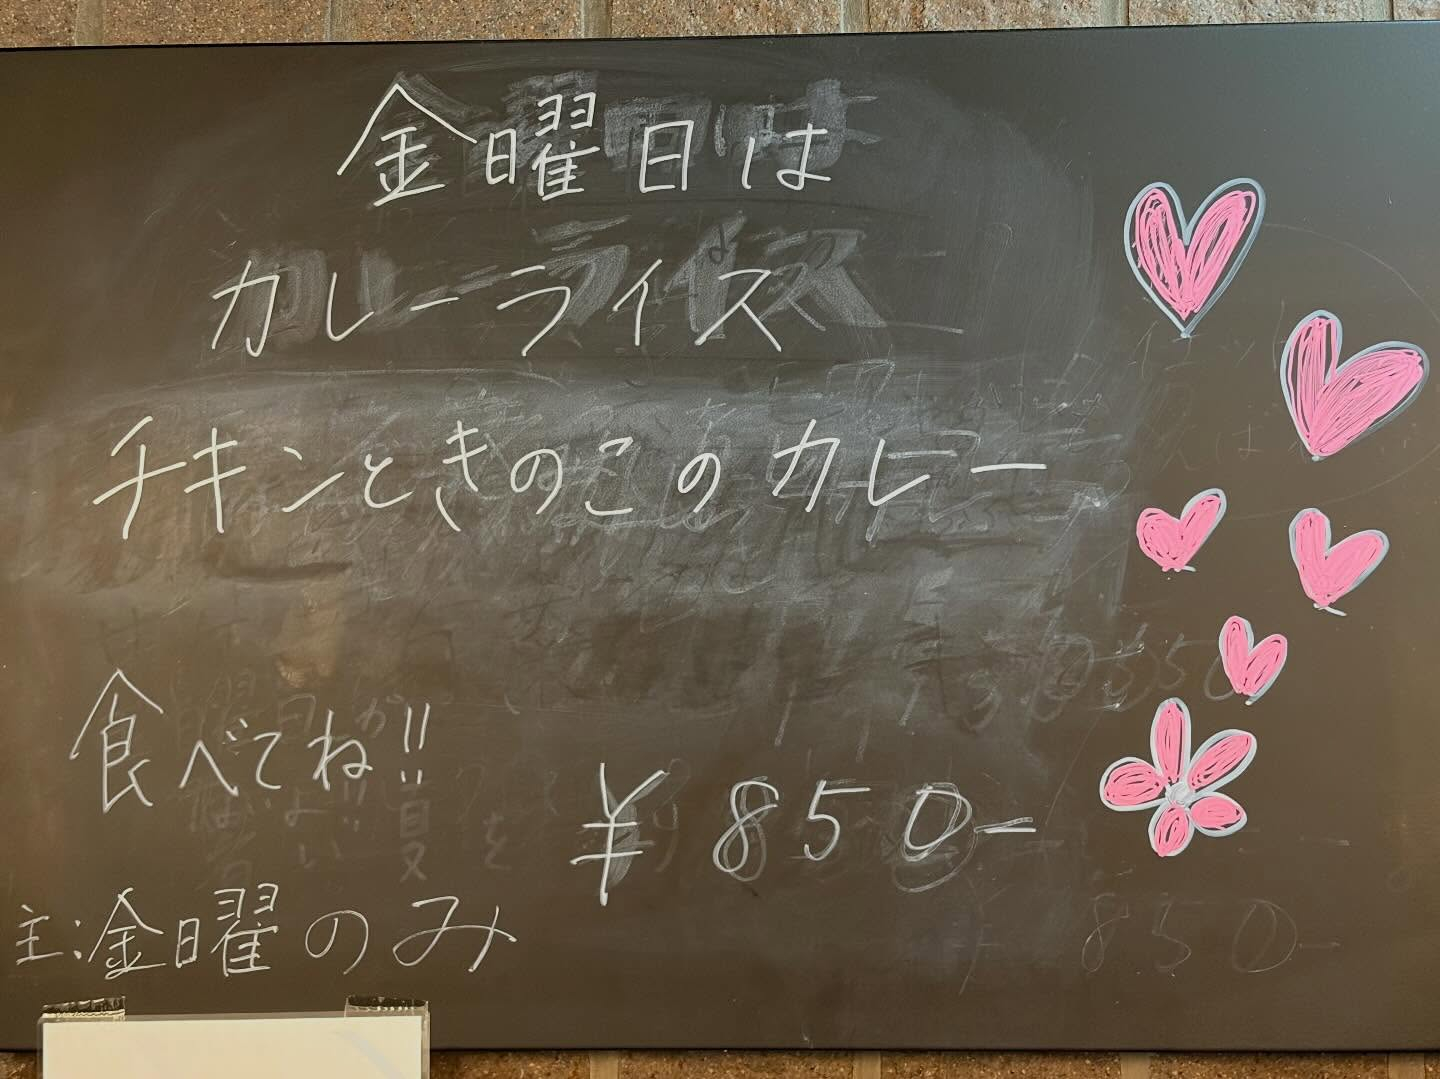 金曜日は
カレーライス
チキンときのこのカレー
食べてね!!
¥850-
主:金曜のみ